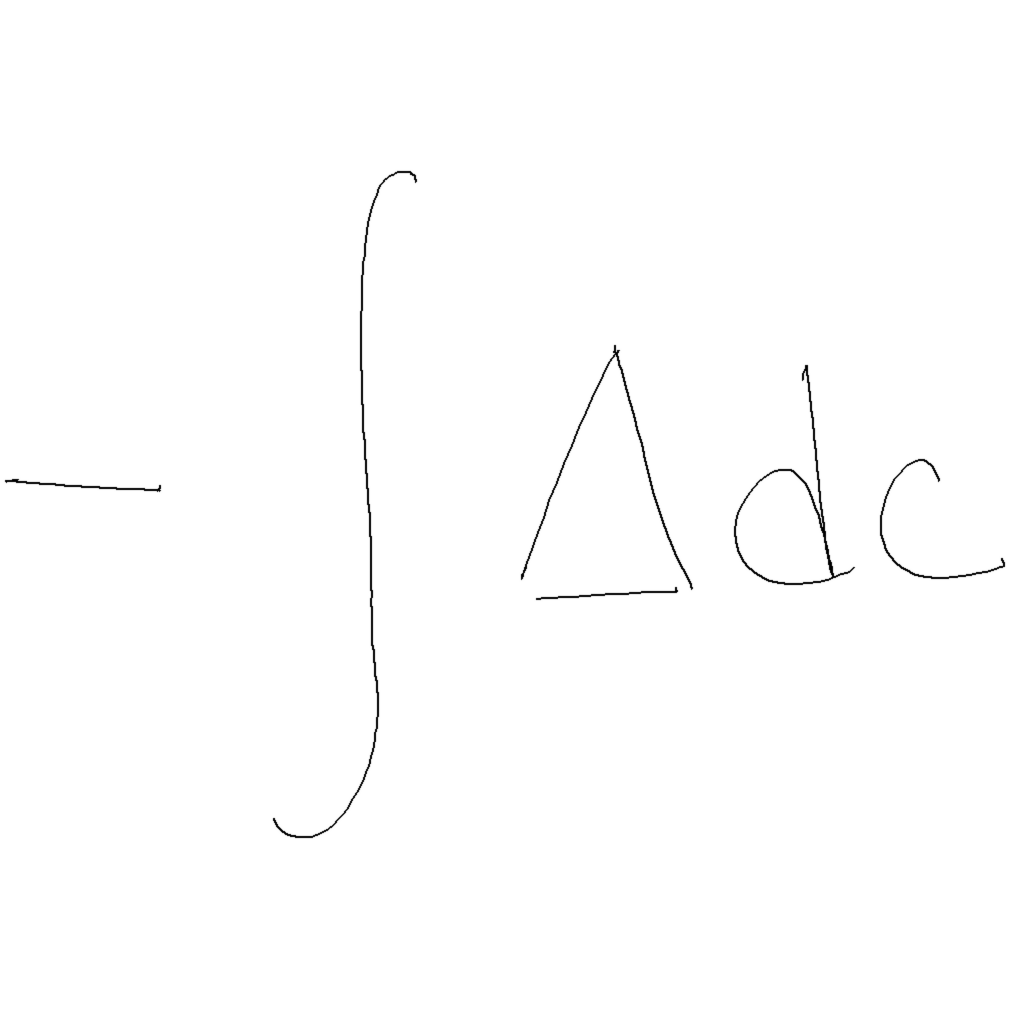 - ∫ Δ d c